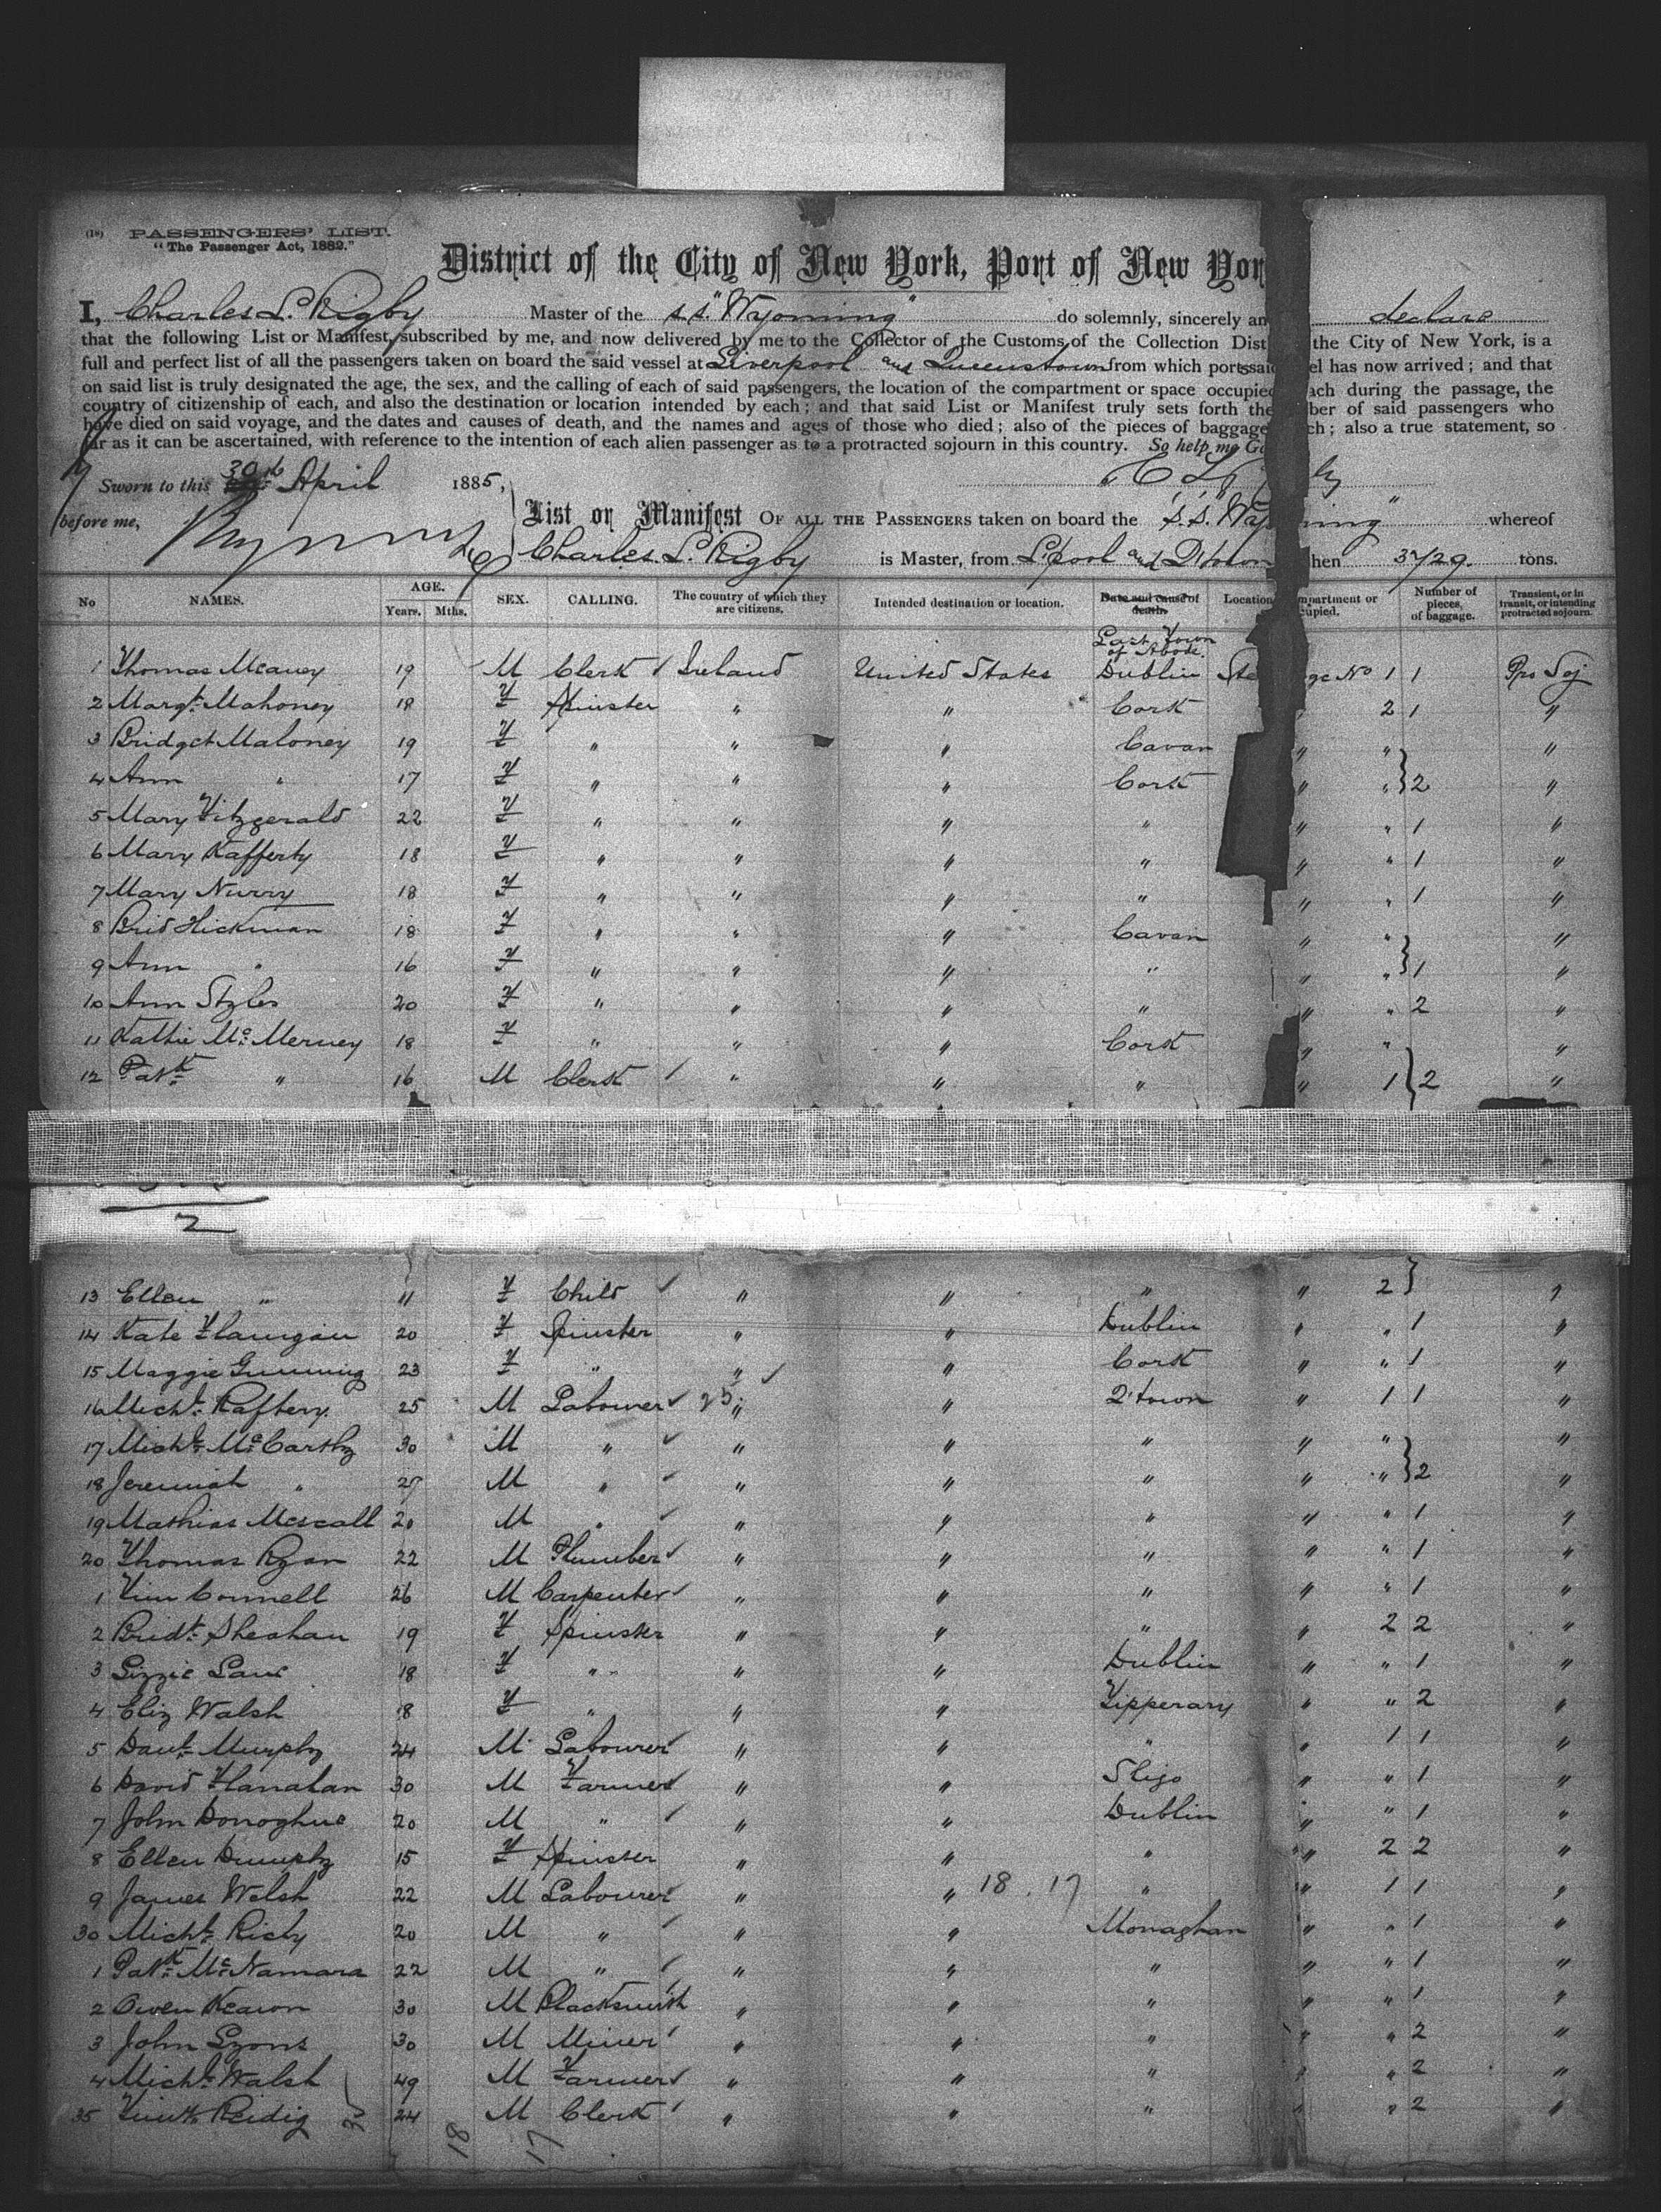 (18) PASSENGERS' LIST.
"The Passenger Act, 1882."
District of the City of New York, Port of New Yor
I, Charles L. Rigby Master of the s.s. "Wyoming" do solemnly, sincerely an declare
that the following List or Manifest, subscribed by me, and now delivered by me to the Collector of the Customs of the Collection Dist the City of New York, is a
full and perfect list of all the passengers taken on board the said vessel at Liverpool and Queenstown from which port said el has now arrived; and that
on said list is truly designated the age, the sex, and the calling of each of said passengers, the location of the compartment or space occupied ach during the passage, the
country of citizenship of each, and also the destination or location intended by each; and that said List or Manifest truly sets forth the ber of said passengers who
have died on said voyage, and the dates and causes of death, and the names and ages of those who died; also of the pieces of baggage ch; also a true statement, so
far as it can be ascertained, with reference to the intention of each alien passenger as to a protracted sojourn in this country. So help me G
Sworn to this 30th April 1885, C L by
before me, List or Manifest OF ALL THE PASSENGERS taken on board the S.S. Wyoming " whereof
Charles L. Rigby is Master, from L'pool and Q'town then 3729. tons.
No NAMES. AGE. Years. Mths. SEX. CALLING. The country of which they are citizens. Intended destination or location. Date and cause of death. Location mpartment or cupied. Number of pieces of baggage. Transient, or in transit, or intending protracted sojourn.
Last Town of Abode.
1 Thomas Meaney 19 M Clerk Ireland United States Dublin Ste ge No 1 1 Pro Soj
2 Margt. Mahoney 18 F Spinster " " Cork " 2 1 "
3 Bridget Maloney 19 F " " " Cavan " " "
4 Ann " 17 F " " " Cork " " 2 "
5 Mary Fitzgerald 22 F " " " " " " 1 "
6 Mary Rafferty 18 F " " " " " " 1 "
7 Mary Nurry 18 F " " " " " " 1 "
8 Brid Hickman 18 F " " " Cavan " " "
9 Ann " 16 F " " " " " " 1 "
10 Ann Styles 20 F " " " " " " 2 "
11 Kattie McMerney 18 F " " " Cork " " "
12 Patk " 16 M Clerk " " " " 1 2 "
2
13 Ellen " 11 F Child " " " " 2 "
14 Kate Flanigan 20 F Spinster " " Dublin " " 1 "
15 Maggie Gunning 23 F " " " Cork " " 1 "
16 Michl. Raftery 25 M Labourer " " Q'town " 1 1 "
17 Michl. McCarthy 30 M " " " " " " "
18 Jeremiah " 27 M " " " " " " 2 "
19 Mathias Mescall 20 M " " " " " " 1 "
20 Thomas Ryan 22 M Plumber " " " " " 1 "
1 Tim Connell 26 M Carpenter " " " " " 1 "
2 Bridt. Sheahan 19 F Spinster " " " " 2 2 "
3 Lizzie Lane 18 F " " " Dublin " " 1 "
4 Eliz Walsh 18 F " " " Tipperary " " 2 "
5 Danl. Murphy 24 M Labourer " " " " 1 1 "
6 David Flanahan 30 M Farmer " " Sligo " " 1 "
7 John Donoghue 20 M " " " Dublin " " 1 "
8 Ellen Dumphy 15 F Spinster " " " " 2 2 "
9 James Welsh 22 M Labourer " " 18 . 17 " " 1 1 "
30 Michl. Richy 20 M " " " Monaghan " " 1 "
1 Patk. McNamara 22 M " " " " " " 1 "
2 Owen Kearon 30 M Blacksmith " " " " " 1 "
3 John Lyons 30 M Miner " " " " " 2 "
4 Michl. Walsh 49 M Farmer " " " " " 2 "
35 Timth. Reidig 24 M Clerk " " " " " 2 "
18 17